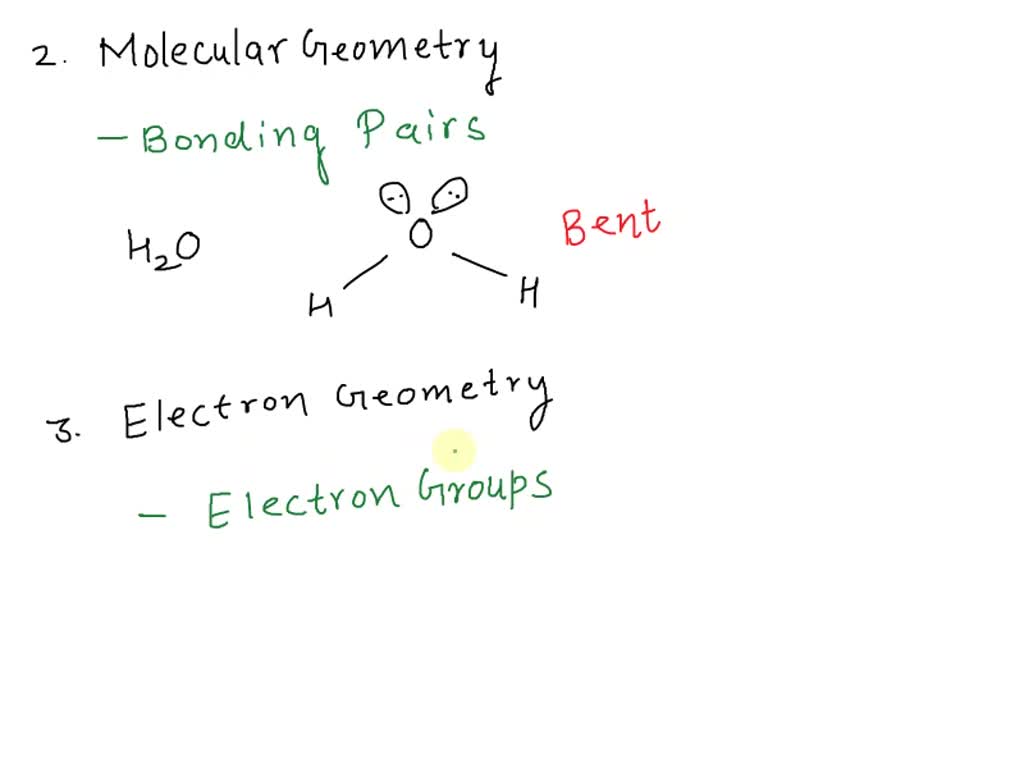 2. Molecular Geometry
- Bonding Pairs
H₂O
O
H
H
Bent
3. Electron Geometry
- Electron Groups